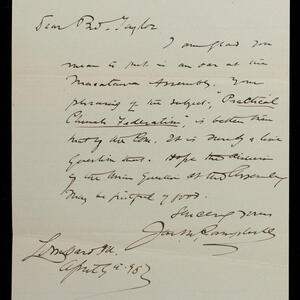 Dear Bro. Taylor
I am glad you
mean to put in an oar at the
Macatawa Assembly. Your
phrasing of the subject, "Practical
Church Federation", is better than
that of the Com. It is surely a live
question now. Hope the discussion
of the question at the Assembly
may be fruitful of good.
Sincerely yours
Lombard Ill.
April 9th - 95